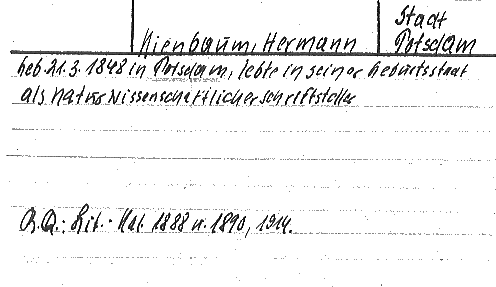 Stadt
Kienbaum, Hermann Potsdam
Geb. 21.3.1848 in Potsdam, lebte in seiner Geburtsstadt
als naturwissenschaftlicher Schriftsteller
A.Q.: Lit.-Kal. 1888 u. 1890, 1914.